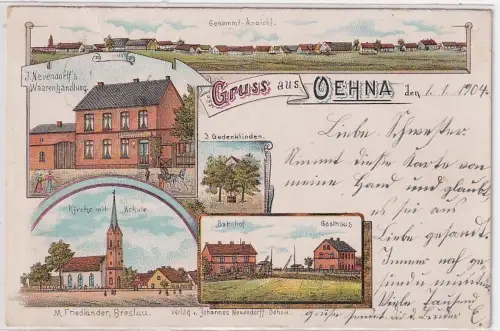 Gesammt-Ansicht.
J. Nevendorff's
Waarenhandlung.
Gruss aus OEHNA den 1. 1. 1904.
3 Gedenklinden.
Kirche mit Schule
Bahnhof Gasthaus
M. Friedländer, Breslau. Verlag v. Johannes Neuendorff, Oehna.
Liebe Schwester
Nimmt diese Karte von
meiner Hand und glaubt,
es sei aus
Liebe gesandt.
Immer noch ge-
sund u. munter